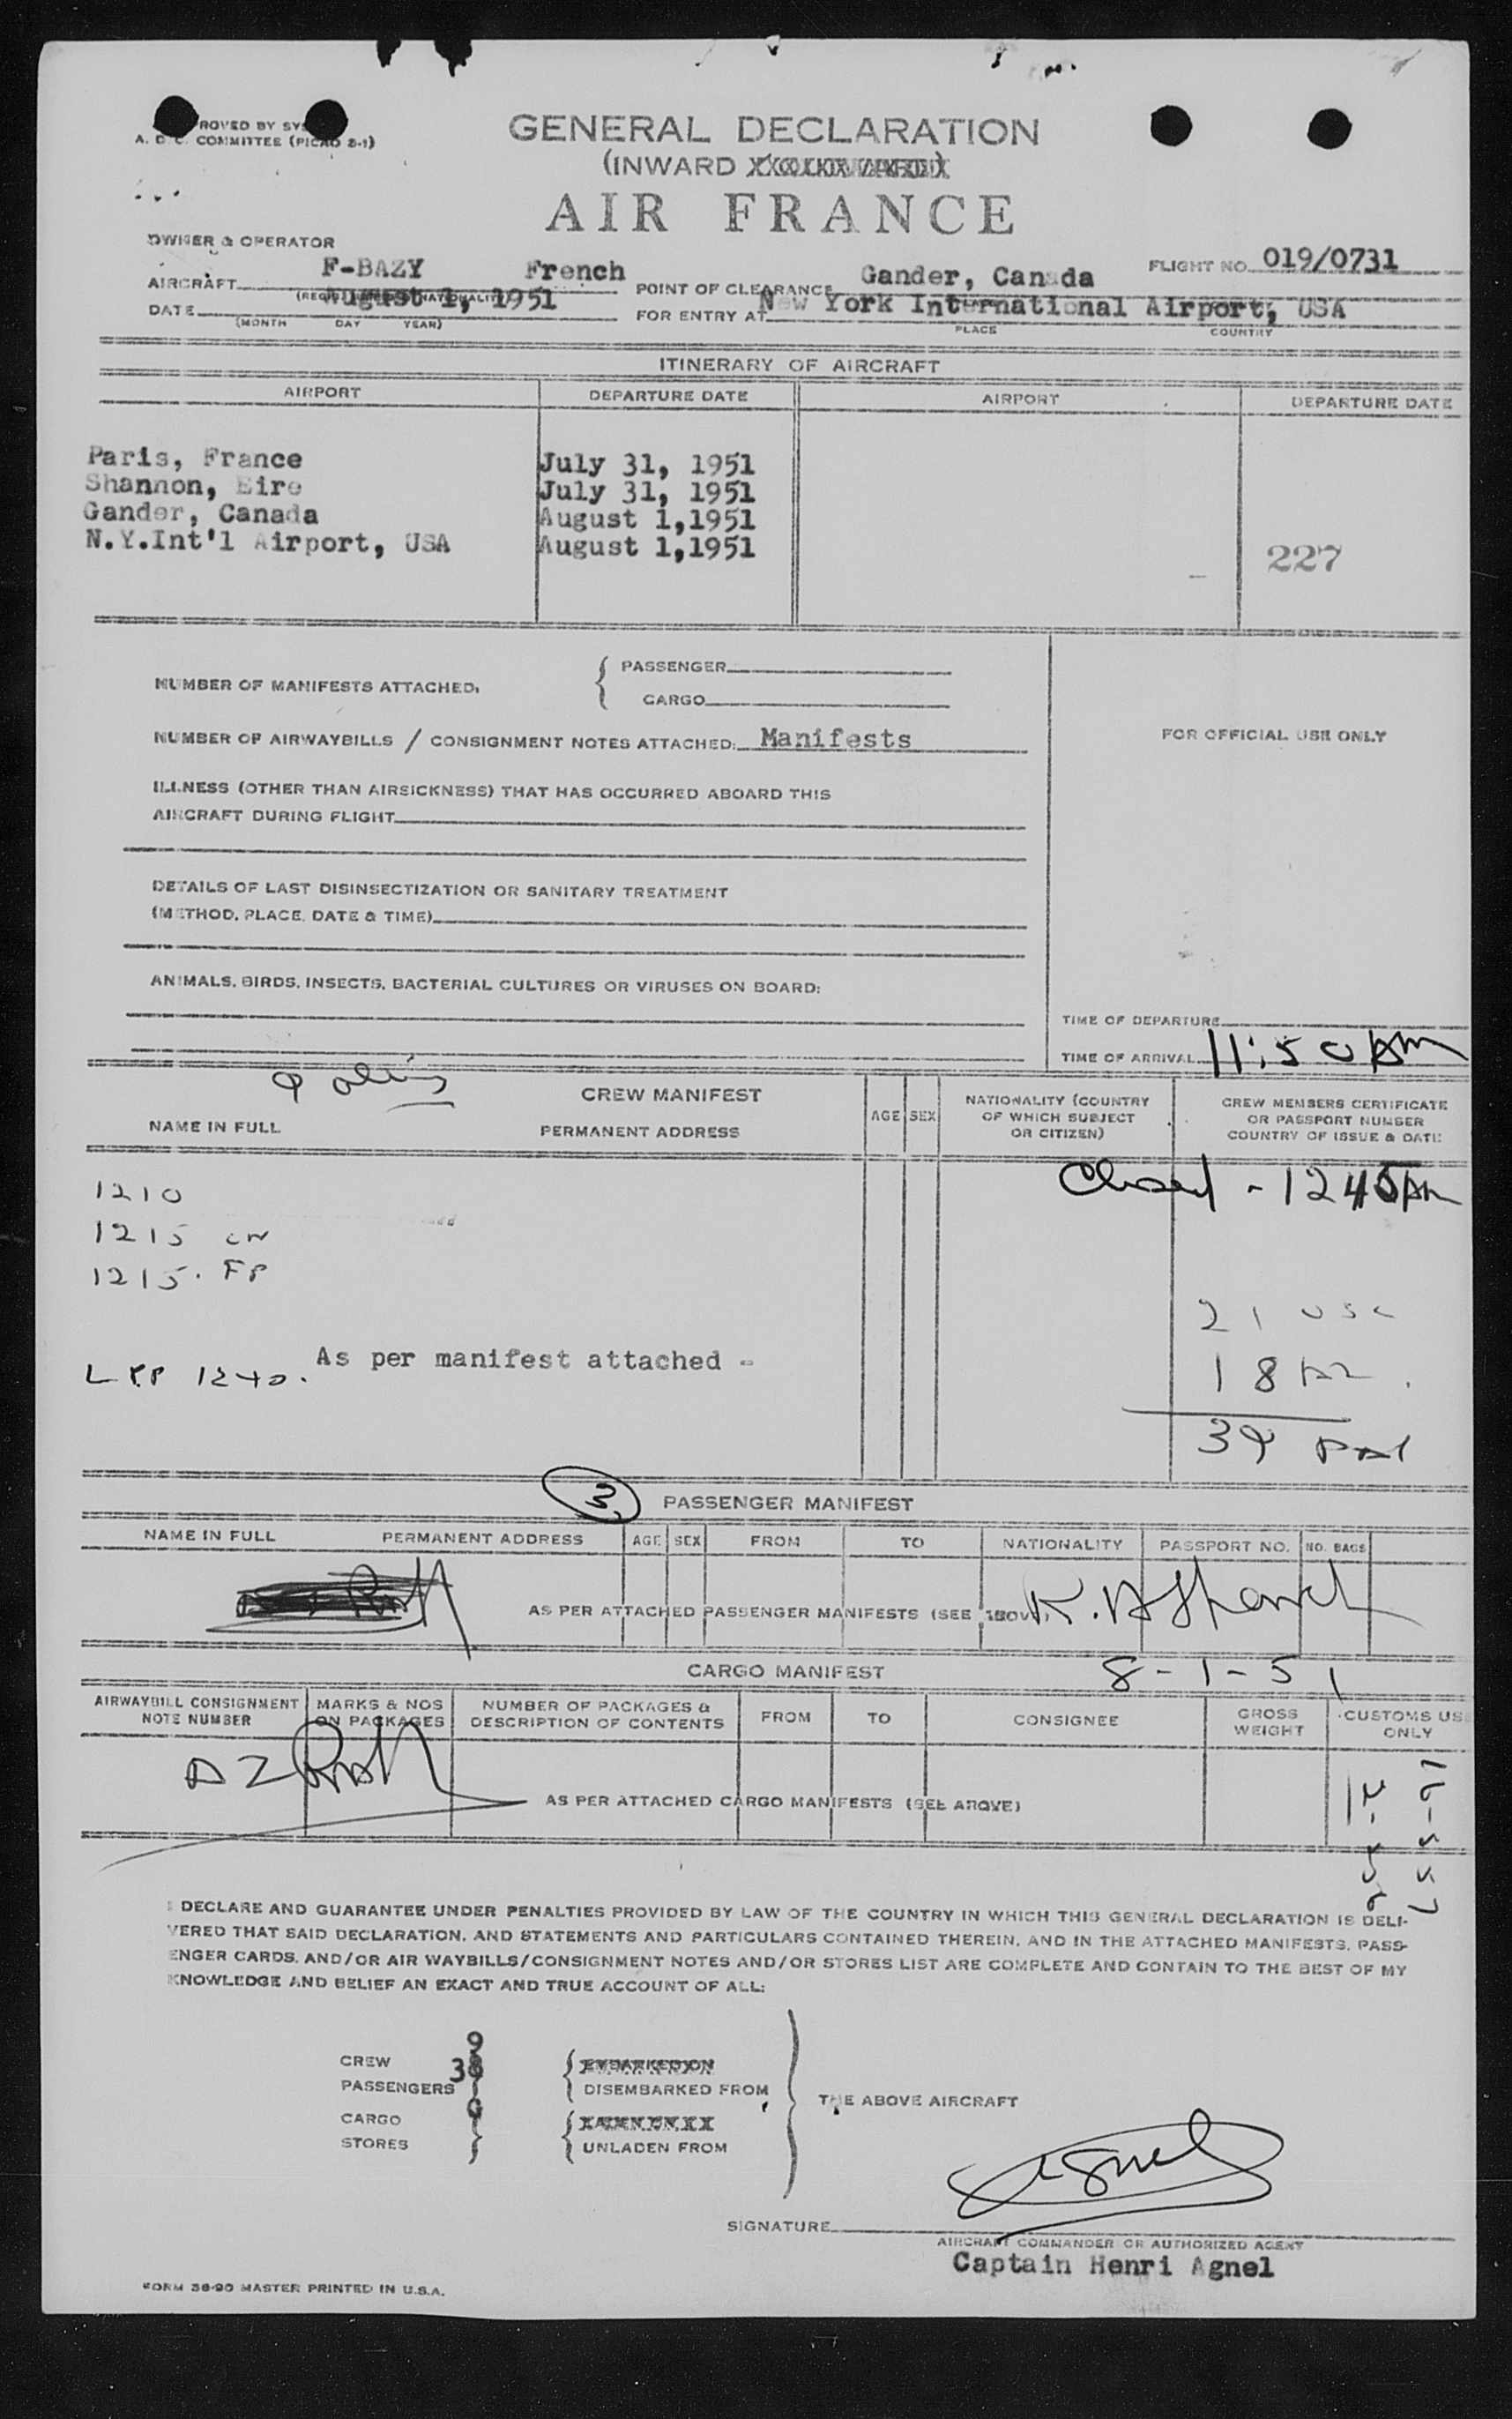 ROVED BY SY
A. D. C. COMMITTEE (PICAO 2-1)
GENERAL DECLARATION
(INWARD
AIR FRANCE
OWNER & OPERATOR
AIRCRAFT F-BAZY French
POINT OF CLEARANCE Gander, Canada
FLIGHT NO. 019/0731
DATE August 1, 1951
(MONTH DAY YEAR)
FOR ENTRY AT New York International Airport, USA
PLACE COUNTRY
ITINERARY OF AIRCRAFT
AIRPORT DEPARTURE DATE AIRPORT DEPARTURE DATE
Paris, France July 31, 1951
Shannon, Eire July 31, 1951
Gander, Canada August 1,1951
N.Y.Int'l Airport, USA August 1,1951
227
NUMBER OF MANIFESTS ATTACHED: { PASSENGER
CARGO
NUMBER OF AIRWAYBILLS / CONSIGNMENT NOTES ATTACHED: Manifests
FOR OFFICIAL USE ONLY
ILLNESS (OTHER THAN AIRSICKNESS) THAT HAS OCCURRED ABOARD THIS
AIRCRAFT DURING FLIGHT
DETAILS OF LAST DISINSECTIZATION OR SANITARY TREATMENT
(METHOD, PLACE, DATE & TIME)
ANIMALS, BIRDS, INSECTS, BACTERIAL CULTURES OR VIRUSES ON BOARD:
TIME OF DEPARTURE
TIME OF ARRIVAL 11:50 AM
CREW MANIFEST
NAME IN FULL PERMANENT ADDRESS AGE SEX
NATIONALITY (COUNTRY
OF WHICH SUBJECT
OR CITIZEN)
CREW MEMBERS CERTIFICATE
OR PASSPORT NUMBER
COUNTRY OF ISSUE & DATE
Closed - 1245 PM
1210
1215
1215. FP
21 USC
As per manifest attached -
1240.
18
39
3
PASSENGER MANIFEST
NAME IN FULL PERMANENT ADDRESS AGE SEX FROM TO NATIONALITY PASSPORT NO. NO. BAGS
AS PER ATTACHED PASSENGER MANIFESTS (SEE ABOVE)
CARGO MANIFEST
8-1-51
AIRWAYBILL CONSIGNMENT
NOTE NUMBER
MARKS & NOS
ON PACKAGES
NUMBER OF PACKAGES &
DESCRIPTION OF CONTENTS
FROM TO CONSIGNEE
GROSS
WEIGHT
CUSTOMS US
ONLY
AS PER ATTACHED CARGO MANIFESTS (SEE ABOVE)
I DECLARE AND GUARANTEE UNDER PENALTIES PROVIDED BY LAW OF THE COUNTRY IN WHICH THIS GENERAL DECLARATION IS DELI-
VERED THAT SAID DECLARATION, AND STATEMENTS AND PARTICULARS CONTAINED THEREIN, AND IN THE ATTACHED MANIFESTS, PASS-
ENGER CARDS, AND/OR AIR WAYBILLS/CONSIGNMENT NOTES AND/OR STORES LIST ARE COMPLETE AND CONTAIN TO THE BEST OF MY
KNOWLEDGE AND BELIEF AN EXACT AND TRUE ACCOUNT OF ALL:
CREW 9
PASSENGERS
DISEMBARKED FROM
THE ABOVE AIRCRAFT
CARGO
STORES
UNLADEN FROM
SIGNATURE Agnel
AIRCRAFT COMMANDER OR AUTHORIZED AGENT
Captain Henri Agnel
FORM 36-90 MASTER PRINTED IN U.S.A.